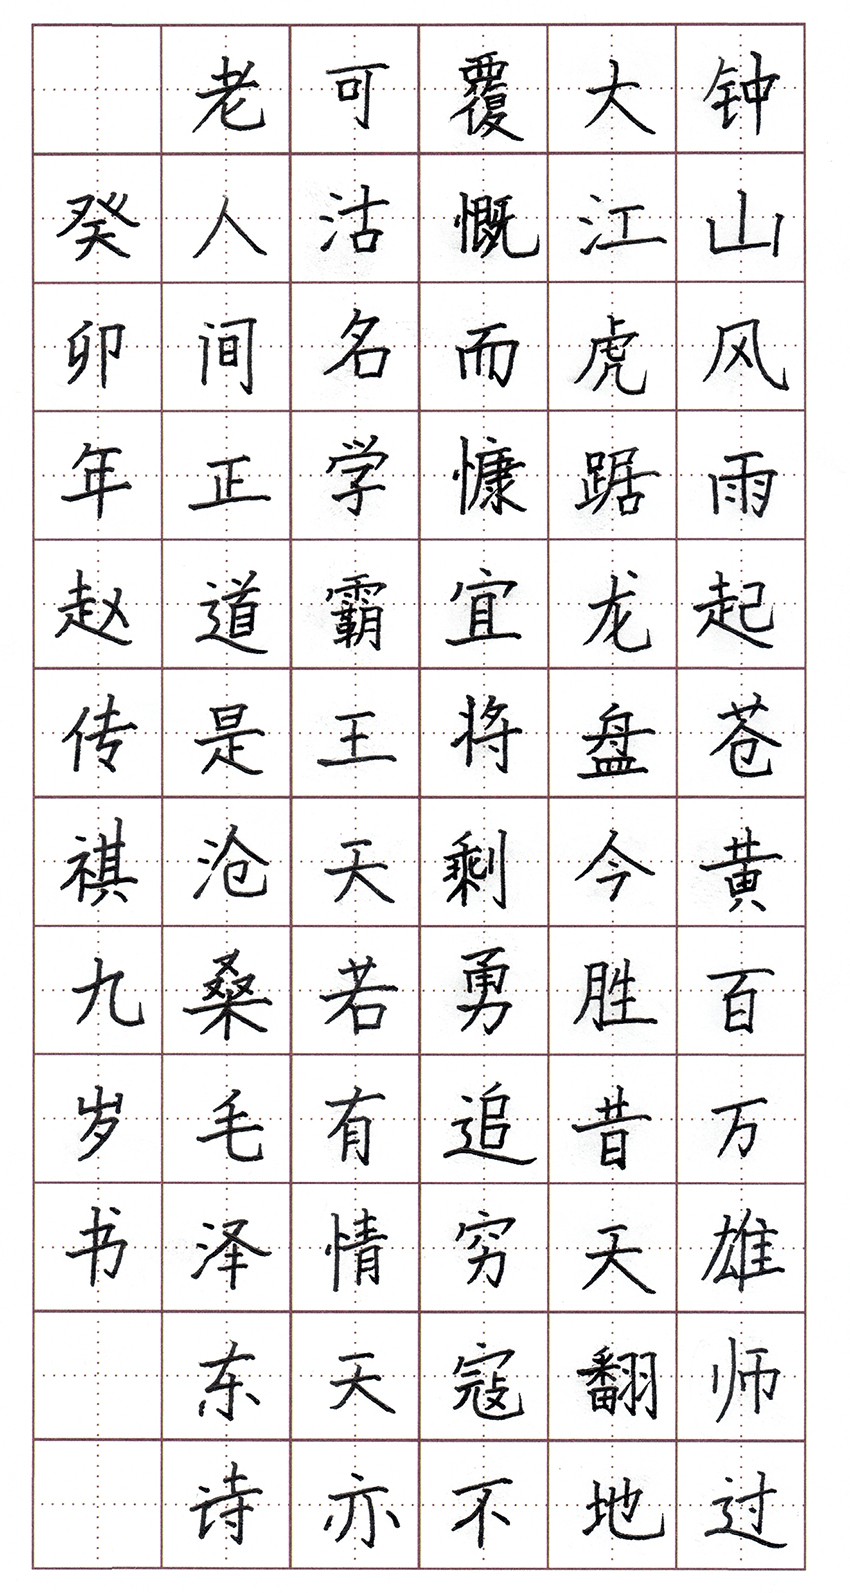 钟山风雨起苍黄百万雄师过
大江虎踞龙盘今胜昔天翻地
覆慨而慷宜将剩勇追穷寇不
可沽名学霸王天若有情天亦
老人间正道是沧桑毛泽东诗
癸卯年赵传祺九岁书